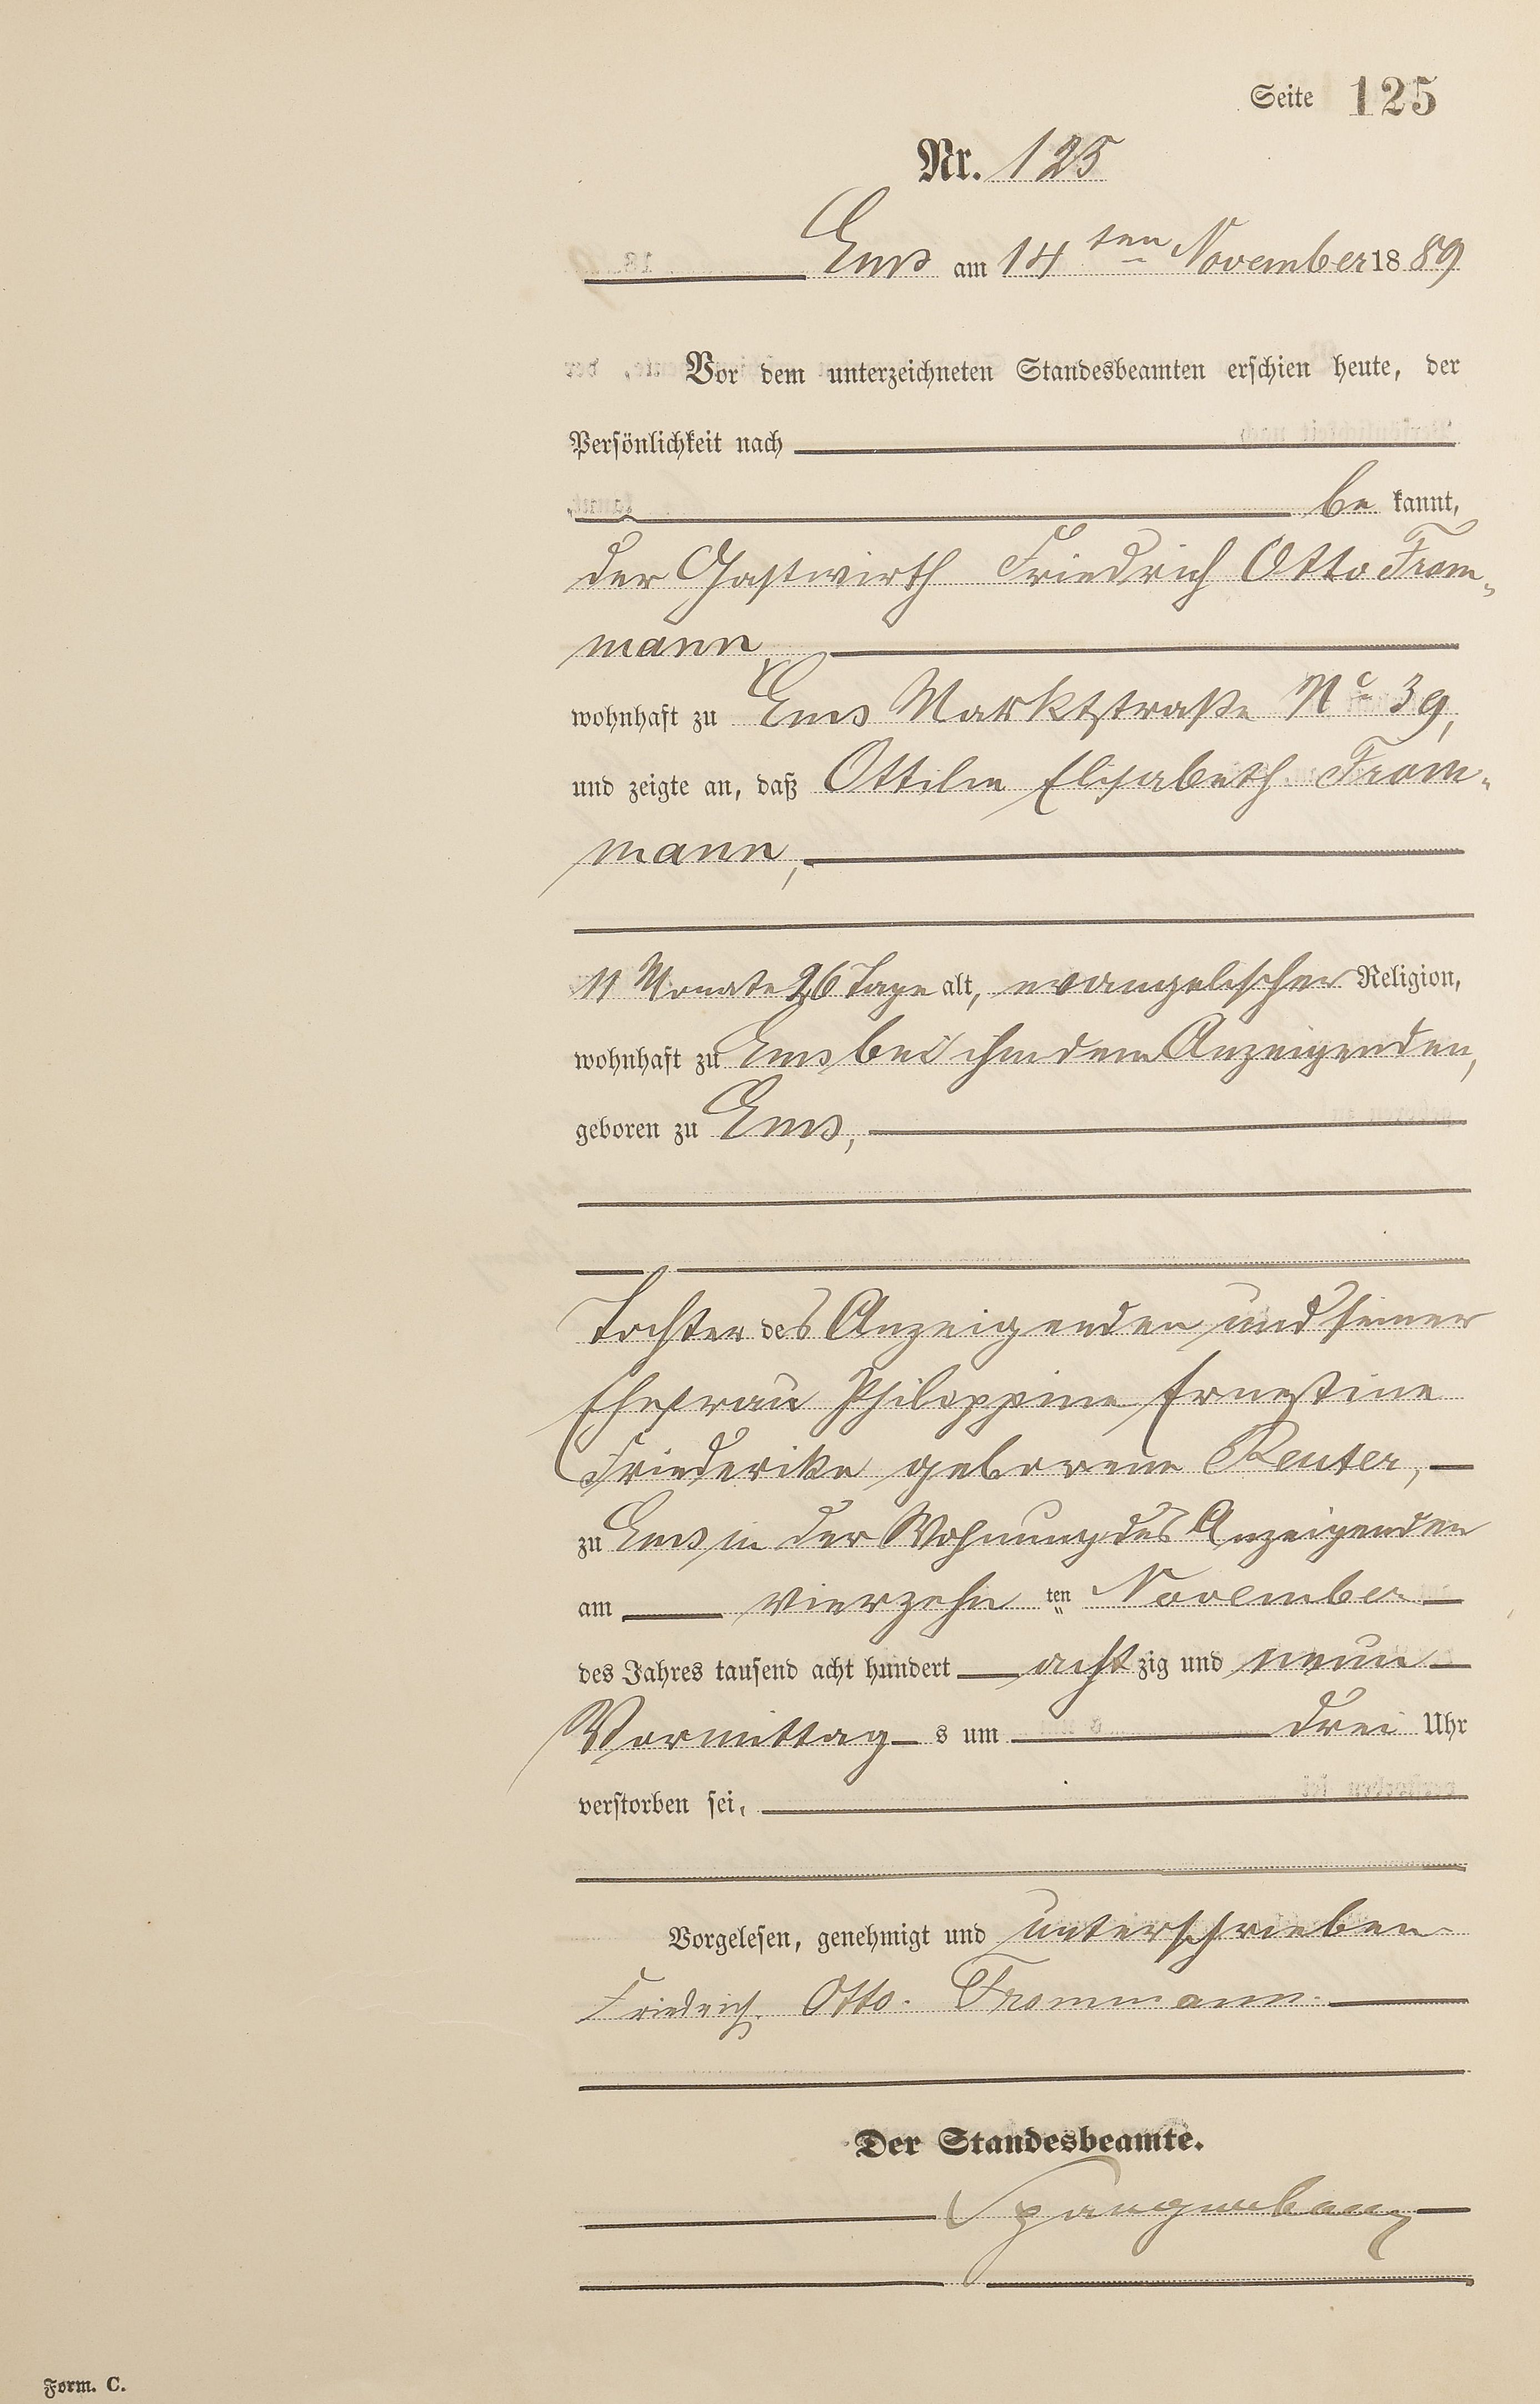 Seite 125
Nr. 125
Ems am 14ten November 1889
Vor dem unterzeichneten Standesbeamten erschien heute, der
Persönlichkeit nach
be kannt,
der Gastwirth Friedrich Otto From-
mann,
wohnhaft zu Ems Marktstraße No 39,
und zeigte an, daß Ottilie Elisabeth From-
mann,
11 Monate 26 Tage alt, evangelischer Religion,
wohnhaft zu Ems bei ihm dem Anzeigenden,
geboren zu Ems,
Tochter des Anzeigenden und seiner
Ehefrau Philippine Ernestine
Friederike geborene Reuter,
zu Ems in der Wohnung des Anzeigenden
am vierzehn ten November
des Jahres tausend acht hundert acht zig und neun
Vormittag s um drei Uhr
verstorben sei,
Vorgelesen, genehmigt und unterschrieben
Friedrich Otto Frommann.
Der Standesbeamte.
Form. C.